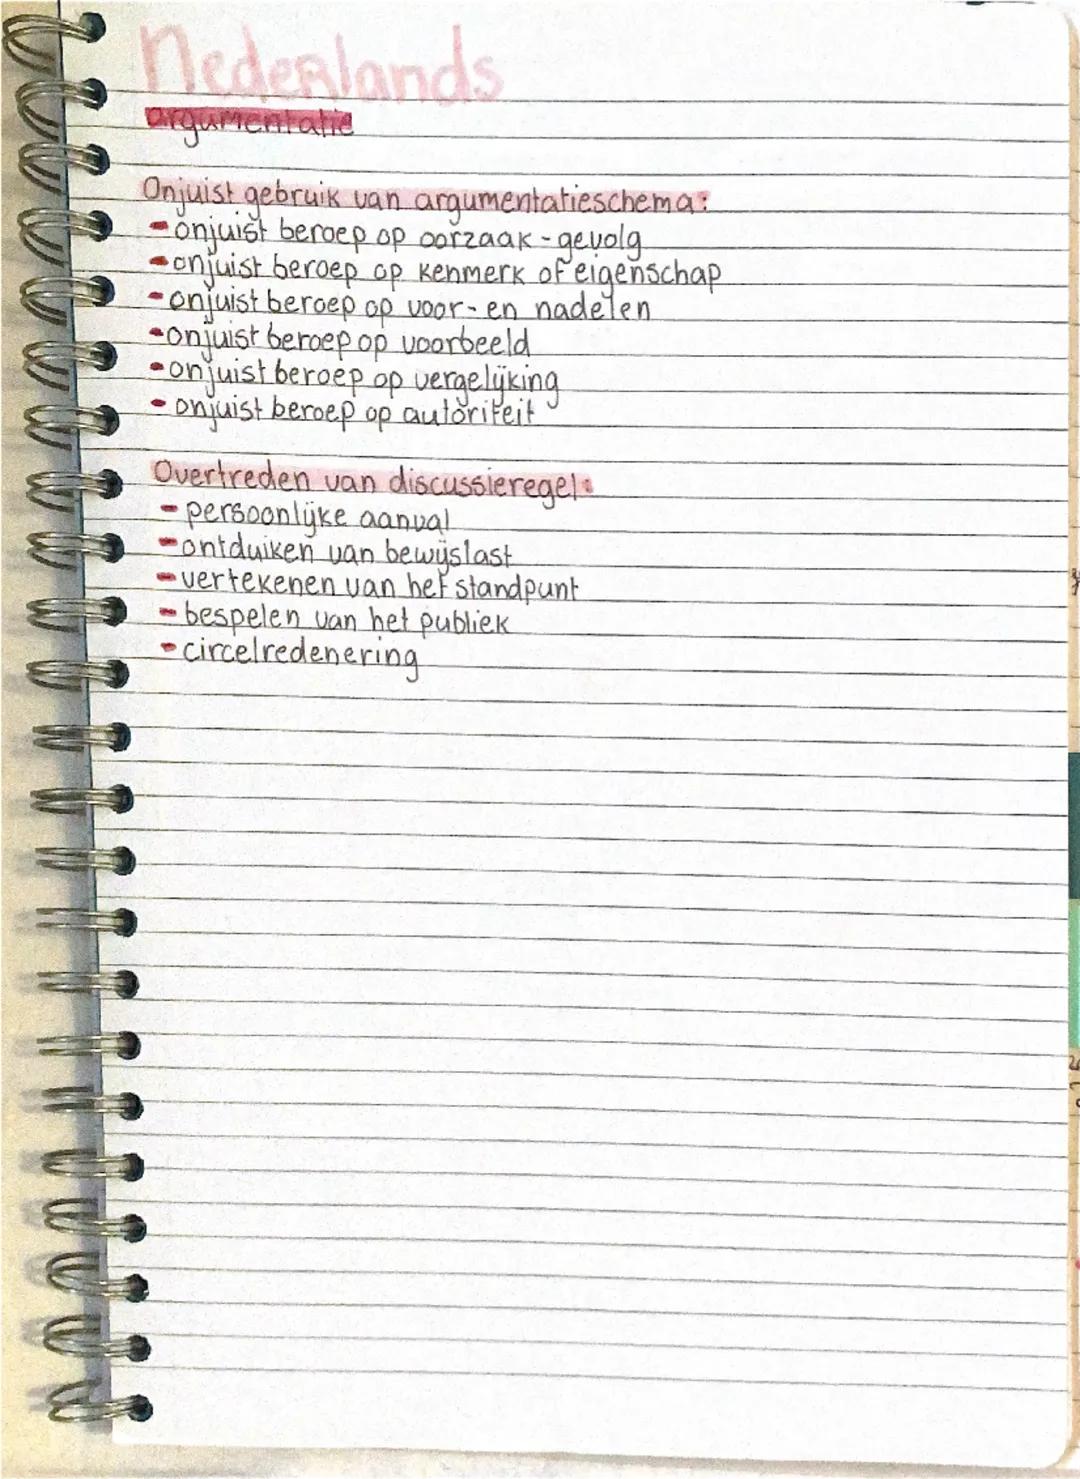 Nederlands
argumentatie
Onjuist gebruik van argumentatieschema:
- onjuist beroep op oorzaak - gevolg
- onjuist beroep op kenmerk of eigenschap
- onjuist beroep op voor- en nadelen
- onjuist beroep op voorbeeld
- onjuist beroep op vergelijking
- onjuist beroep op autoriteit
Overtreden van discussieregel:
- persoonlijke aanval
- ontduiken van bewijslast
- vertekenen van het standpunt
- bespelen van het publiek
- circelredenering